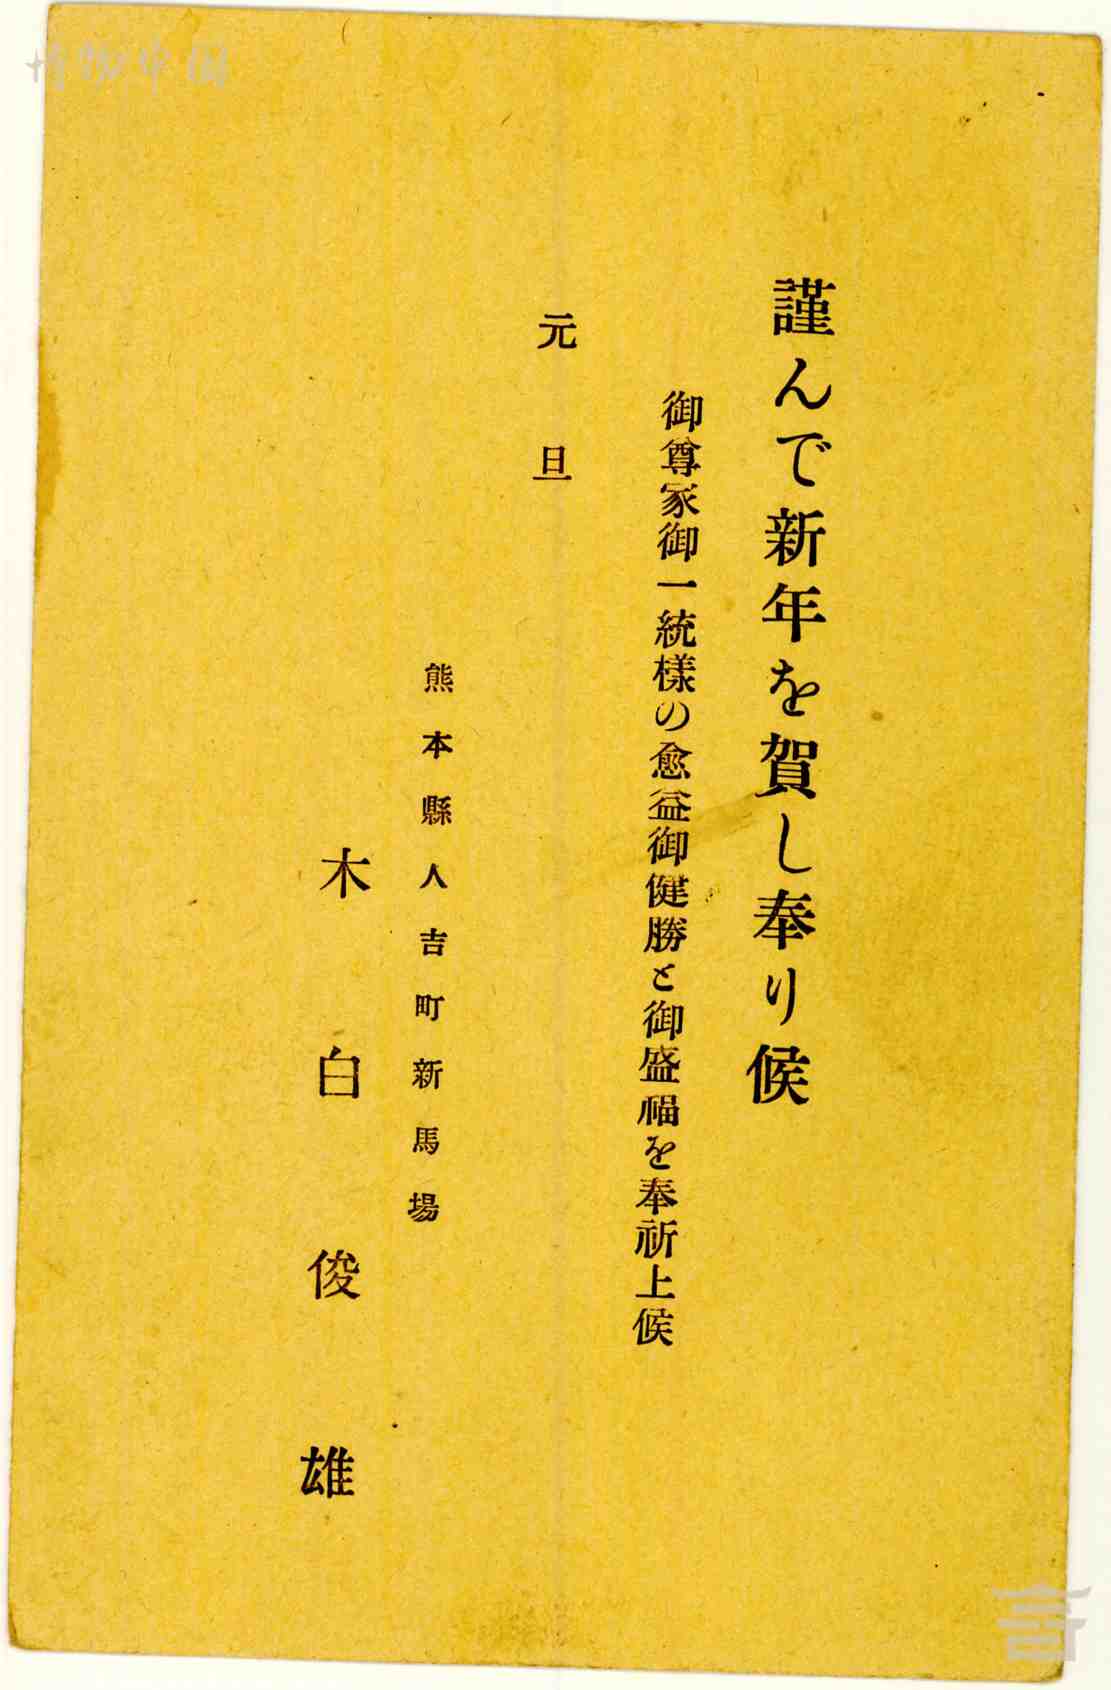 謹んで新年を賀し奉り候
御尊家御一統樣の愈益御健勝と御盛福を奉祈上候
元旦
熊本縣人吉町新馬場
木白俊雄
博物中国